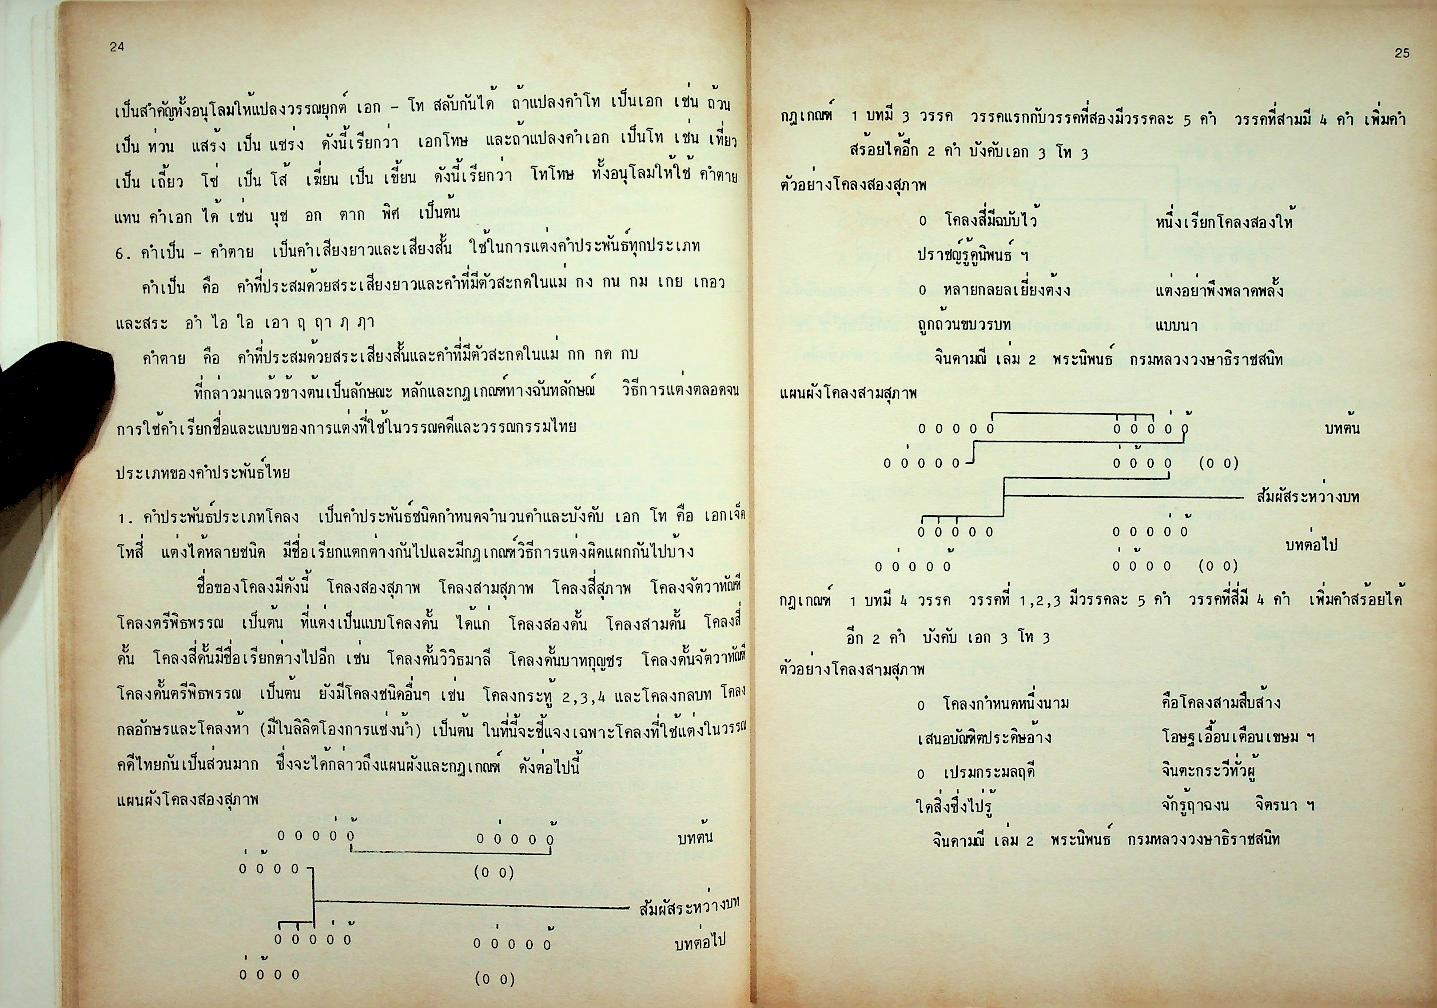 24
เป็นสำคัญทั้งอนุโลมให้แปลงวรรณยุกต์ เอก - โท สลับกันได้ ถ้าแปลงคำโท เป็นเอก เช่น ถ้วน
เป็น ท่วน แสร้ง เป็น แซ่รง ดังนี้เรียกว่า เอกโทษ และถ้าแปลงคำเอก เป็นโท เช่น เที่ยว
เป็น เถี้ยว โซ่ เป็น โส้ เฆี่ยน เป็น เขี้ยน ดังนี้เรียกว่า โทโทษ ทั้งอนุโลมให้ใช้ คำตาย
แทน คำเอก ได้ เช่น นุช อก ตาก พิศ เป็นต้น
6. คำเป็น - คำตาย เป็นคำเสียงยาวและเสียงสั้น ใช้ในการแต่งคำประพันธ์ทุกประเภท
คำเป็น คือ คำที่ประสมด้วยสระเสียงยาวและคำที่มีตัวสะกดในแม่ กง กน กม เกย เกอว
และสระ อำ ไอ ใอ เอา ฤ ฤา ภ ภา
คำตาย คือ คำที่ประสมด้วยสระเสียงสั้นและคำที่มีตัวสะกดในแม่ กก กด กบ
ที่กล่าวมาแล้วข้างต้นเป็นลักษณะ หลักและกฎเกณฑ์ทางฉันทลักษณ์ วิธีการแต่งตลอดจน
การใช้คำเรียกชื่อและแบบของการแต่งที่ใช้ในวรรณคดีและวรรณกรรมไทย
ประเภทของคำประพันธ์ไทย
1. คำประพันธ์ประเภทโคลง เป็นคำประพันธ์ชนิดกำหนดจำนวนคำและบังคับ เอก โท คือ เอกเจ็ด
โทสี่ แต่งได้หลายชนิด มีชื่อเรียกแตกต่างกันไปและมีกฎเกณฑ์วิธีการแต่งผิดแผกกันไปบ้าง
ชื่อของโคลงมีดังนี้ โคลงสองสุภาพ โคลงสามสุภาพ โคลงสี่สุภาพ โคลงจัตวาทัณฑี
โคลงตรีพิธพรรณ เป็นต้น ที่แต่งเป็นแบบโคลงดั้น ได้แก่ โคลงสองดั้น โคลงสามดั้น โคลงสี่
ดั้น โคลงสี่ดั้นมีชื่อเรียกต่างไปอีก เช่น โคลงดั้นวิวิธมาลี โคลงดั้นบาทกุญชร โคลงดั้นจัตวาทัณฑี
โคลงดั้นตรีพิธพรรณ เป็นต้น ยังมีโคลงชนิดอื่นๆ เช่น โคลงกระทู้ 2,3,4 และโคลงกลบท โคลง
กลอักษรและโคลงห้า (มีในลิลิตโองการแช่งน้ำ) เป็นต้น ในที่นี้จะชี้แจงเฉพาะโคลงที่ใช้แต่งในวรรณ
คดีไทยกันเป็นส่วนมาก ซึ่งจะได้กล่าวถึงแผนผังและกฎเกณฑ์ ดังต่อไปนี้
แผนผังโคลงสองสุภาพ
0 0 0 0่ 0้ 0 0่ 0 0 0้ บทต้น
0่ 0้ 0 0 (0 0)
สัมผัสระหว่างบท
0 0 0 0่ 0้ 0 0่ 0 0 0้ บทต่อไป
0่ 0้ 0 0 (0 0)
25
กฎเกณฑ์ 1 บทมี 3 วรรค วรรคแรกกับวรรคที่สองมีวรรคละ 5 คำ วรรคที่สามมี 4 คำ เพิ่มคำ
สร้อยได้อีก 2 คำ บังคับเอก 3 โท 3
ตัวอย่างโคลงสองสุภาพ
0 โคลงสี่มีฉบับไว้ หนึ่งเรียกโคลงสองให้
ปราชญ์รู้ดูนิพนธ์ ฯ
0 หลายกลยลเยี่ยงต้งง แต่งอย่าพึงพลาดพลั้ง
ถูกถ้วนขบวรบท แบบนา
จินดามณี เล่ม 2 พระนิพนธ์ กรมหลวงวงษาธิราชสนิท
แผนผังโคลงสามสุภาพ
0 0 0 0 0 0 0 0 0่ 0้ บทต้น
0 0่ 0 0 0 0่ 0้ 0 0 (0 0)
สัมผัสระหว่างบท
0 0 0 0 0 0 0 0 0่ 0้ บทต่อไป
0 0่ 0 0 0้ 0่ 0้ 0 0 (0 0)
กฎเกณฑ์ 1 บทมี 4 วรรค วรรคที่ 1,2,3 มีวรรคละ 5 คำ วรรคที่สี่มี 4 คำ เพิ่มคำสร้อยได้
อีก 2 คำ บังคับ เอก 3 โท 3
ตัวอย่างโคลงสามสุภาพ
0 โคลงกำหนดหนึ่งนาม คือโคลงสามสืบส้าง
เสนอบัณฑิตประดิษอ้าง โอษฐเอื้อนเตือนเขษม ฯ
0 เปรมกระมลฤดี จินตะกระวีทั่วผู้
ใดสิ่งซึ่งไป่รู้ จักรู้ฤาฉงน จิตรนา ฯ
จินดามณี เล่ม 2 พระนิพนธ์ กรมหลวงวงษาธิราชสนิท